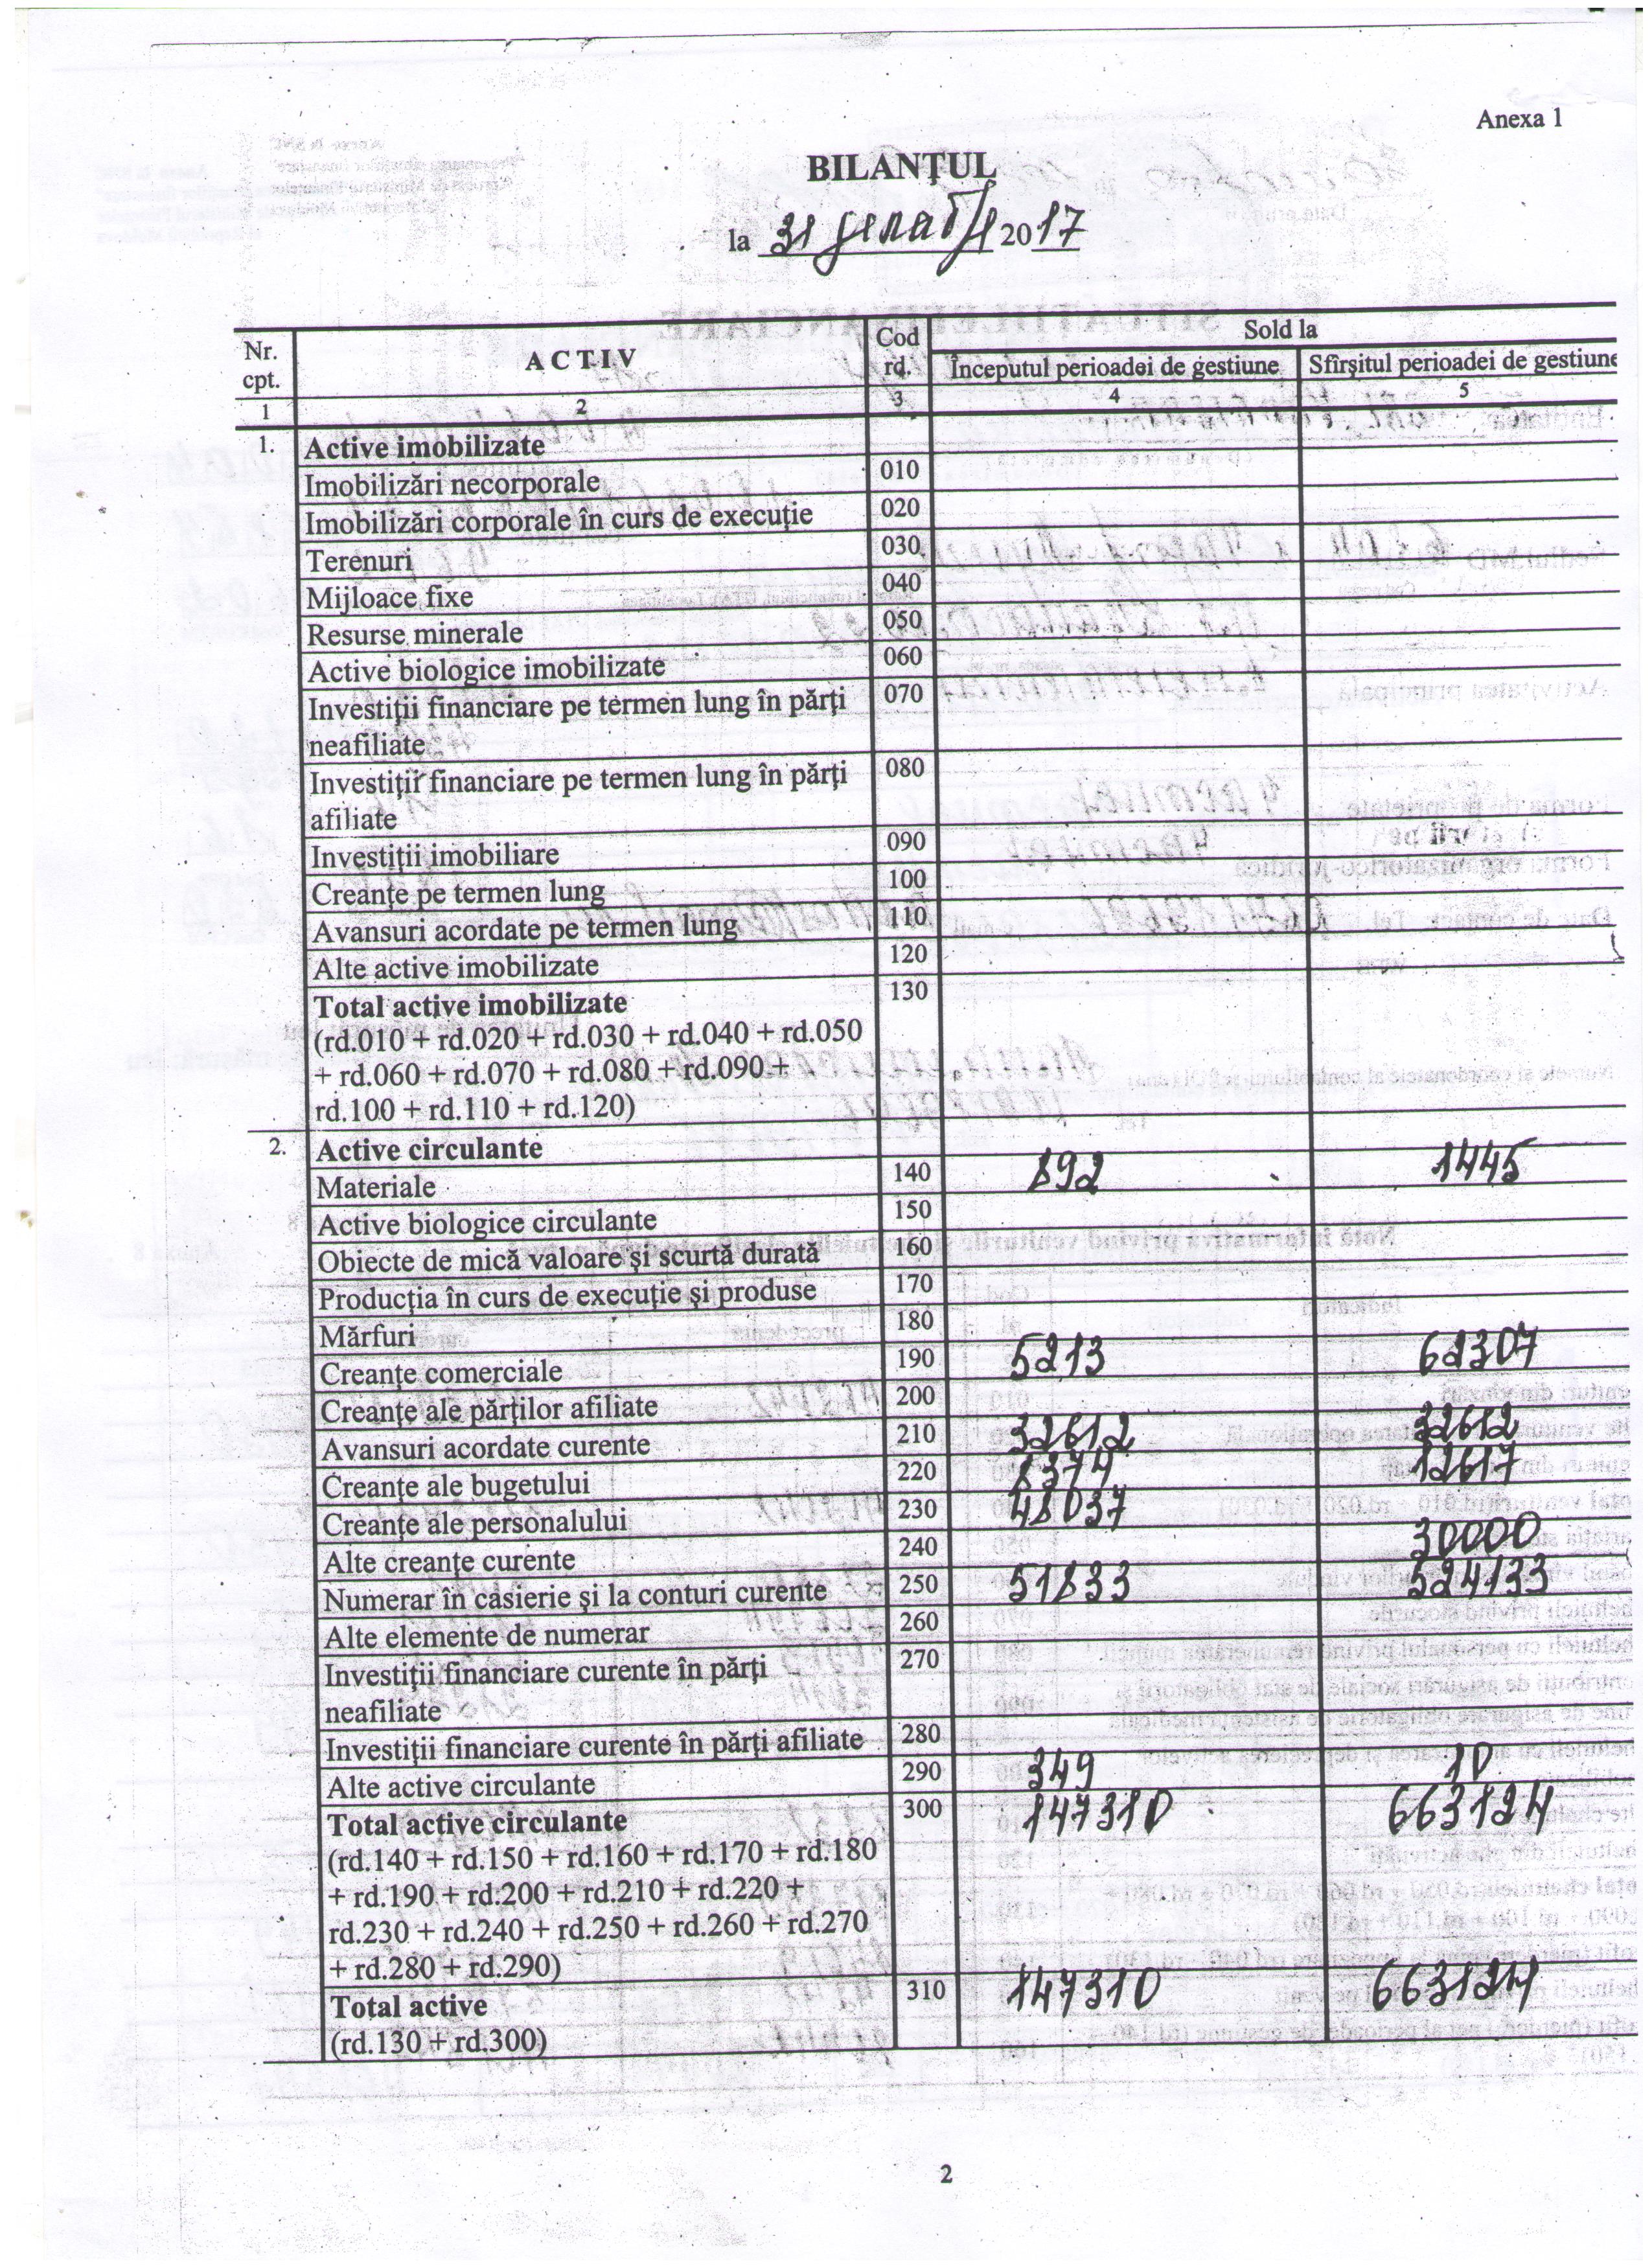 Anexa 1
BILANŢUL
la 31 декабря 2017
Nr. cpt. A C T I V Cod rd. Sold la
Începutul perioadei de gestiune Sfîrşitul perioadei de gestiune
1 2 3 4 5
1. Active imobilizate
Imobilizări necorporale 010
Imobilizări corporale în curs de execuţie 020
Terenuri 030
Mijloace fixe 040
Resurse minerale 050
Active biologice imobilizate 060
Investiţii financiare pe termen lung în părţi 070
neafiliate
Investiţii financiare pe termen lung în părţi 080
afiliate
Investiţii imobiliare 090
Creanţe pe termen lung 100
Avansuri acordate pe termen lung 110
Alte active imobilizate 120
Total active imobilizate 130
(rd.010 + rd.020 + rd.030 + rd.040 + rd.050
+ rd.060 + rd.070 + rd.080 + rd.090 +
rd.100 + rd.110 + rd.120)
2. Active circulante
Materiale 140 892 1445
Active biologice circulante 150
Obiecte de mică valoare şi scurtă durată 160
Producţia în curs de execuţie şi produse 170
Mărfuri 180
Creanţe comerciale 190 5213 62307
Creanţe ale părţilor afiliate 200
Avansuri acordate curente 210 32612 32612
Creanţe ale bugetului 220 8374 12617
Creanţe ale personalului 230 48037
Alte creanţe curente 240 30000
Numerar în casierie şi la conturi curente 250 51833 524133
Alte elemente de numerar 260
Investiţii financiare curente în părţi 270
neafiliate
Investiţii financiare curente în părţi afiliate 280
Alte active circulante 290 349 10
Total active circulante 300 147310 663124
(rd.140 + rd.150 + rd.160 + rd.170 + rd.180
+ rd.190 + rd.200 + rd.210 + rd.220 +
rd.230 + rd.240 + rd.250 + rd.260 + rd.270
+ rd.280 + rd.290)
Total active 310 147310 663124
(rd.130 + rd.300)
2